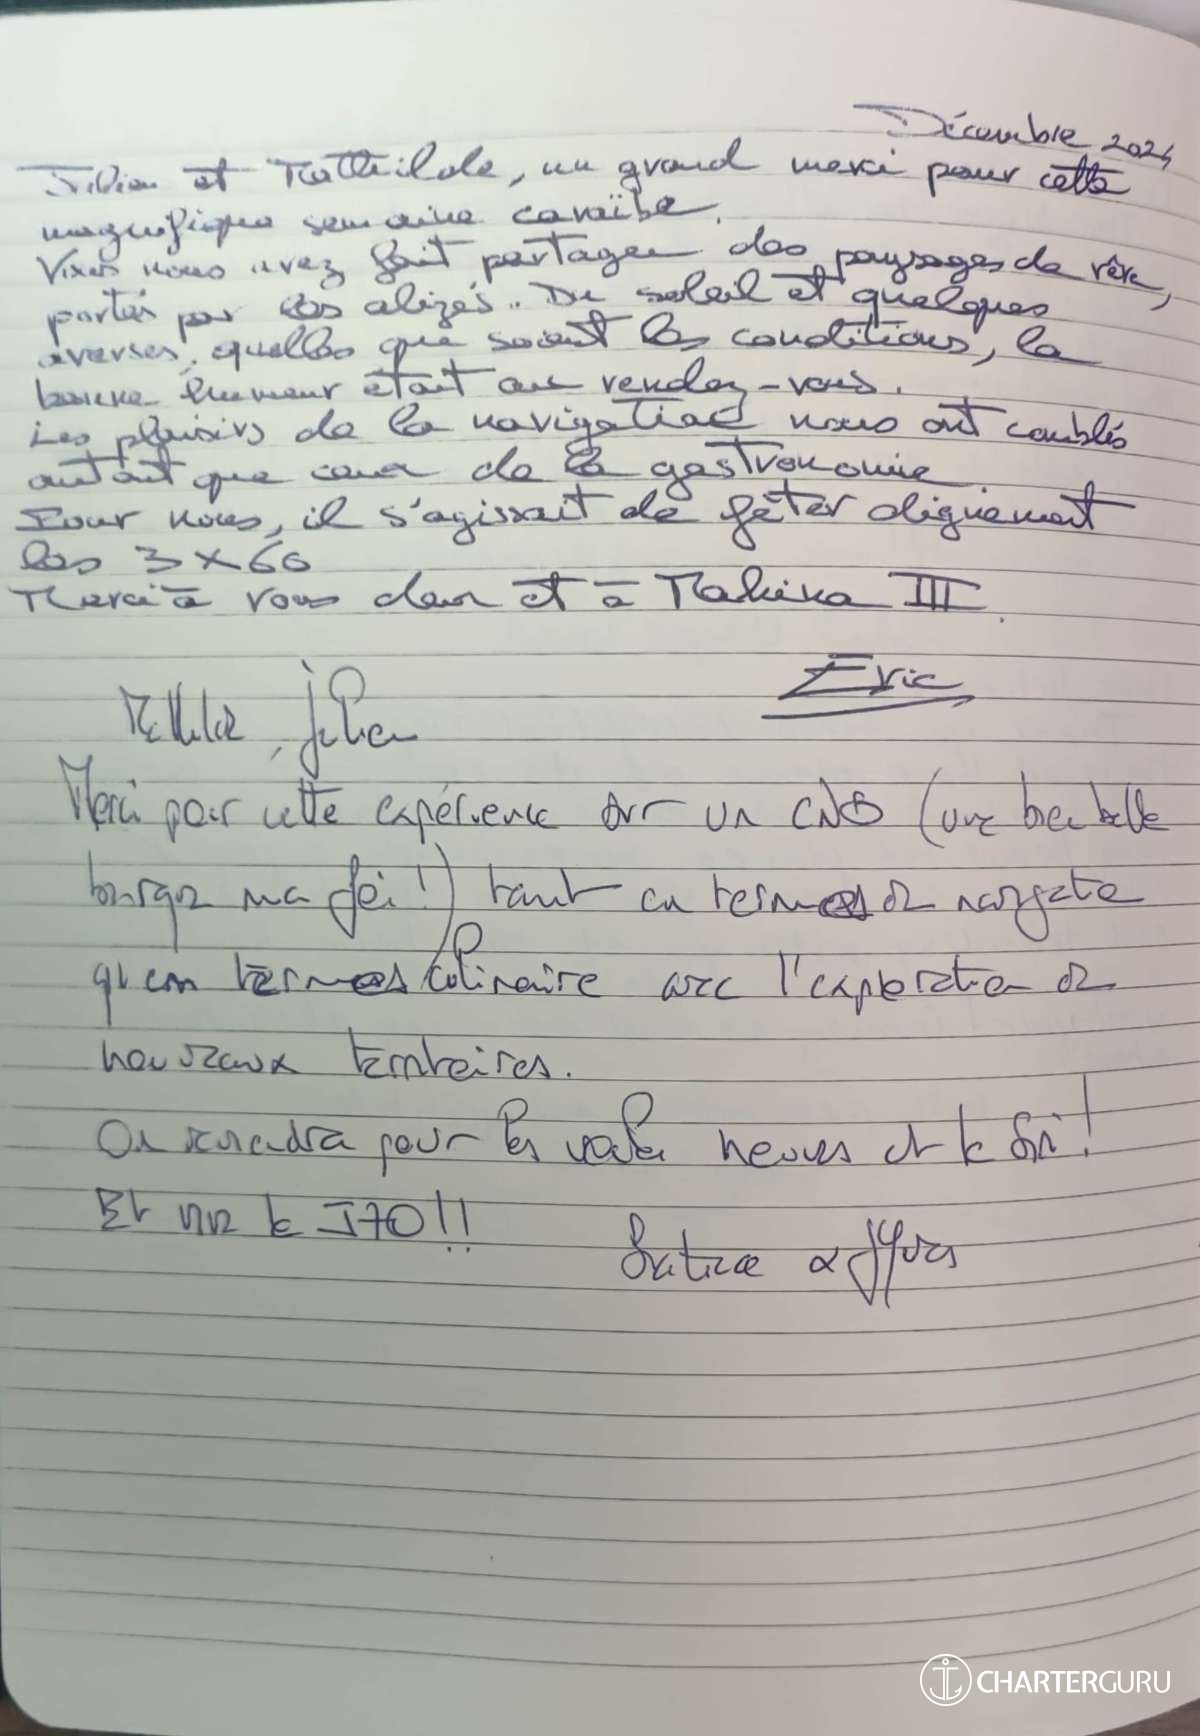 Décembre 2024
Julien et Mathilde, un grand merci pour cette
magnifique semaine caraïbe.
Vous nous avez fait partager des paysages de rêve,
portés par les alizés. Du soleil et quelques
averses, quelles que soient les conditions, la
bonne humeur était au rendez-vous.
Les plaisirs de la navigation nous ont comblés
autant que ceux de la gastronomie
Pour nous, il s'agissait de fêter dignement
les 3 x 60
Merci à vous deux et à Mahina III.
Eric
Mathilde, Julien
Merci pour cette expérience sur un CNB (une bien belle
barque ma foi !) tant en termes de navigation
qu'en termes culinaire avec l'exploration de
nouveaux territoires.
On reviendra pour les voiles neuves et le spi !
Et vive le J70 !!
&
CHARTERGURU